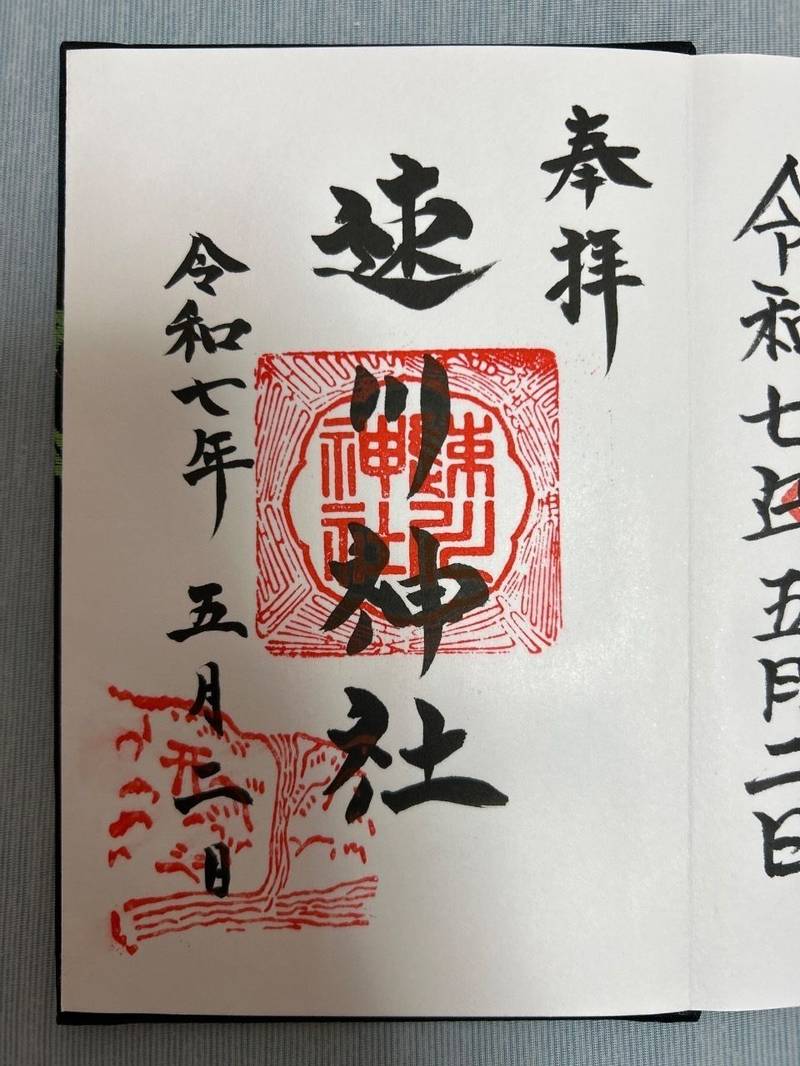 令和七年五月二日
奉拝
速川神社
速川
神社
令和七年 五月二日